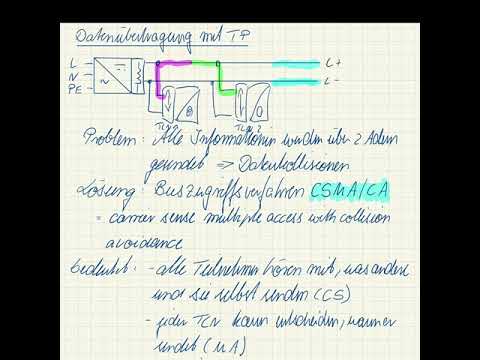 Datenübertragung mit TP
L
N
PE
L+
L-
TLN 1
TLN 2
Problem: Alle Informationen werden über 2 Adern
gesendet ⇒ Datenkollisionen
Lösung: Buszugriffsverfahren CSMA/CA
= carrier sense multiple access with collision
avoidance
bedeutet: - alle Teilnehmer hören mit, was andere
und sie selbst senden (CS)
- jeder TLN kann entscheiden, wann er
sendet (MA)